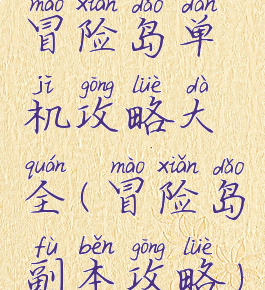 mào xiǎn dǎo dān
冒险岛单
jī gōng lüè dà
机攻略大
quán mào xiǎn dǎo
全(冒险岛
fù běn gōng lüè
副本攻略)